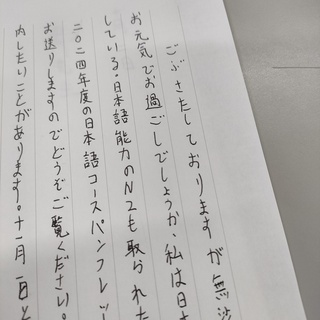 ごぶさたしておりますが無沙
お元気でお過ごしでしょうか、私は日本
している。日本語能力のN2も取られた
二〇二四年度の日本語コースパンフレッ
お送りしますのでどうぞご覧ください。
内したいことがあります。十一月一日と